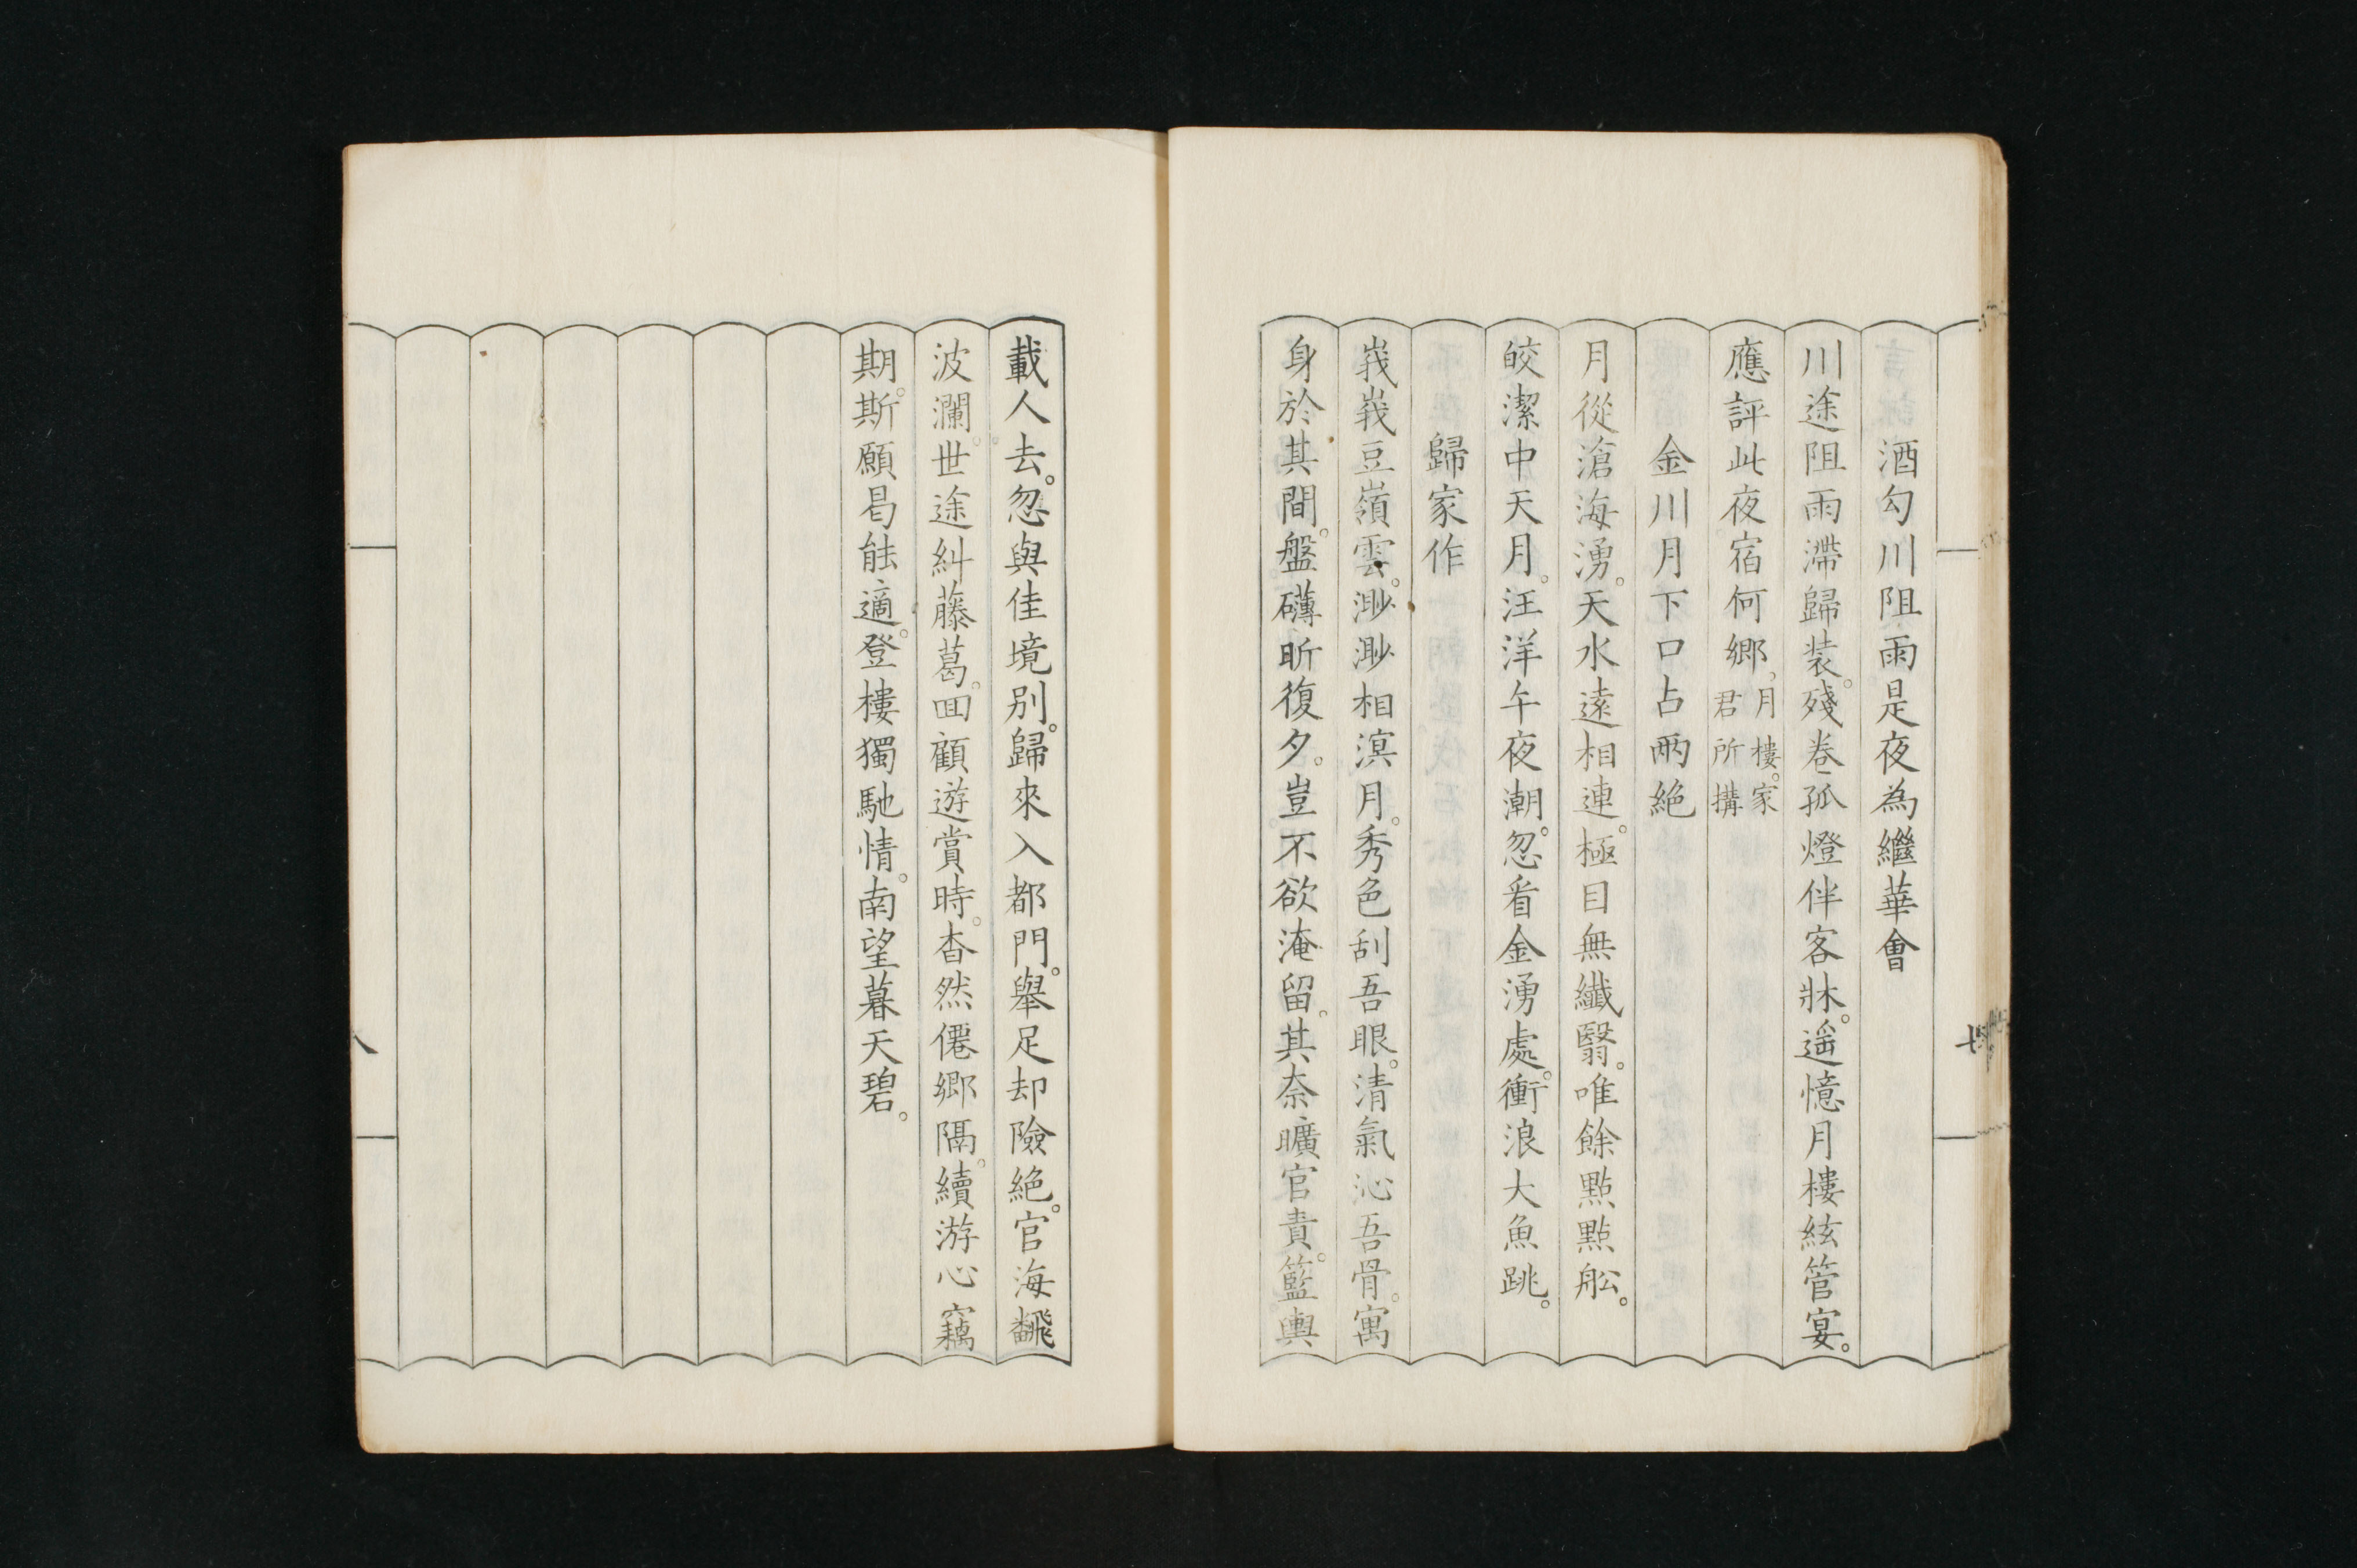 酒勾川阻雨是夜為繼華會
川途阻雨滯歸装。殘卷孤燈伴客牀。遥憶月樓絃管宴。
應評此夜宿何郷。月樓。家君所搆
金川月下口占兩絶
月從滄海湧。天水遠相連。極目無纖翳。唯餘點點舩。
皎潔中天月。汪洋午夜潮。忽看金湧處。衝浪大魚跳。
歸家作
峩峩豆嶺雲。渺渺相溟月。秀色刮吾眼。清氣沁吾骨。寓
身於其間。盤礴昕復夕。豈不欲淹留。其奈曠官責。籃輿
七
載人去。忽與佳境別。歸來入都門。舉足却險絶。官海飜
波瀾。世途糾藤葛。囬顧遊賞時。杳然僊郷隔。續游心竊
期。斯願曷能適。登樓獨馳情。南望暮天碧。
八